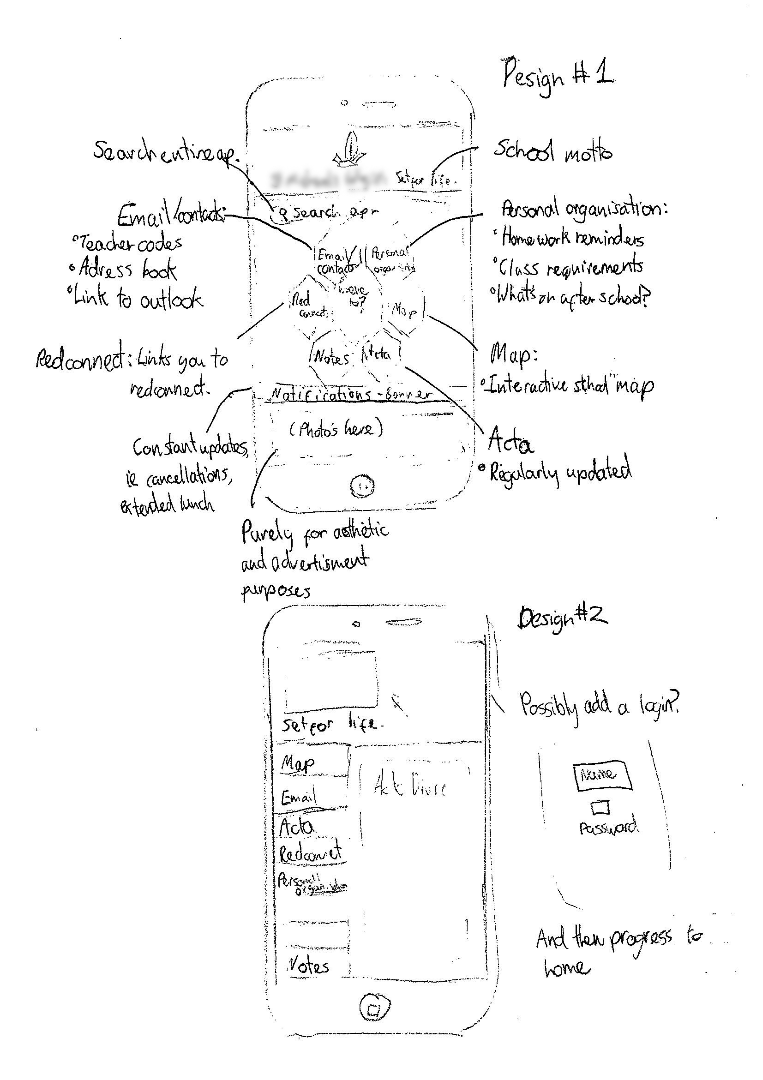 Design #1
Search entire ap.
School motto
Set for life.
Search apr
Email/contacts:
°Teacher codes
•Adress book
°Link to outlook
Personal organisation:
°Homework reminders
°Class requirements
°What's on after school?
Email/
contact
Personal
Red
connect
to?
Map
Notes
Acta
Redconnect: Links you to
redconnect.
Map:
•Interactive "map
Notifications - banner
(Photo's here)
Constant updates,
ie cancellations,
extended lunch
Acta
•Regularly updated
Purely for asthetic
and advertisment
purposes
Design #2
Possibly add a login?
Set for life.
Map
Email
Acta
Redconnet
Personal
Notes
Name
Password
And then progress to
home